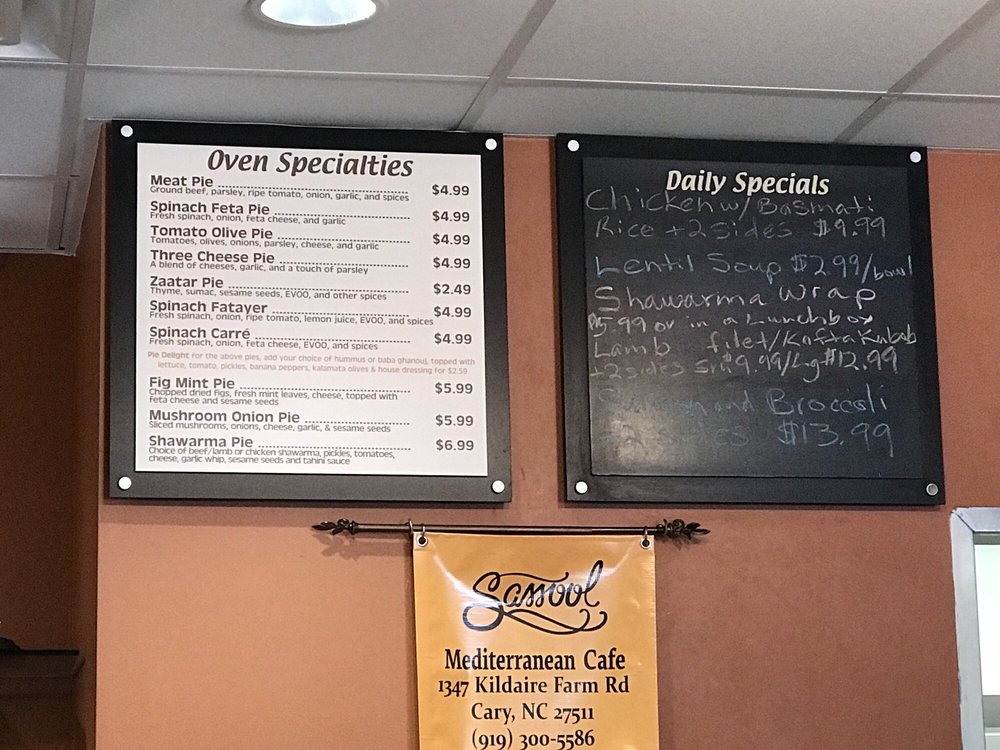 Oven Specialties
Meat Pie $4.99
Ground beef, parsley, ripe tomato, onion, garlic, and spices
Spinach Feta Pie $4.99
Fresh spinach, onion, feta cheese, and garlic
Tomato Olive Pie $4.99
Tomatoes, olives, onions, parsley, cheese, and garlic
Three Cheese Pie $4.99
A blend of cheeses, garlic, and a touch of parsley
Zaatar Pie $2.49
Thyme, sumac, sesame seeds, EVOO, and other spices
Spinach Fatayer $4.99
Fresh spinach, onion, ripe tomato, lemon juice, EVOO, and spices
Spinach Carré $4.99
Fresh spinach, onion, feta cheese, EVOO, and spices
Pie Delight for the above pies, add your choice of hummus or baba ghanouj, topped with
lettuce, tomato, pickles, banana peppers, kalamata olives & house dressing for $2.59
Fig Mint Pie $5.99
Chopped dried figs, fresh mint leaves, cheese, topped with
feta cheese and sesame seeds
Mushroom Onion Pie $5.99
Sliced mushrooms, onions, cheese, garlic, & sesame seeds
Shawarma Pie $6.99
Choice of beef/lamb or chicken shawarma, pickles, tomatoes,
cheese, garlic whip, sesame seeds and tahini sauce
Daily Specials
Chicken w/Basmati
Rice +2 sides $9.99
Lentil Soup $2.99/bowl
Shawarma Wrap
5.99 or in a Lunchbox
Lamb filet/Kafta Kabob
+2 sides Sm $9.99/Lg $12.99
and Broccoli
$13.99
Sassool
Mediterranean Cafe
1347 Kildaire Farm Rd
Cary, NC 27511
(919) 300-5586